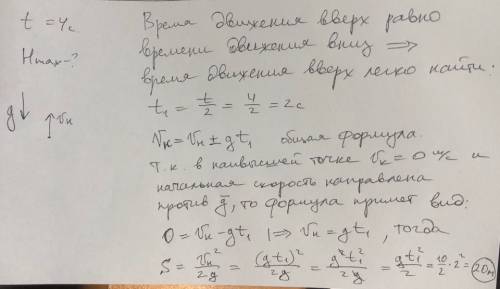 t = 4с
Hmax - ?
g↓ ↑vн
Время движения вверх равно
времени движения вниз ⇒
время движения вверх легко найти.
t₁ = t/2 = 4/2 = 2с
Vк = Vн ± gt₁ общая формула.
Т.к. в наивысшей точке Vк = 0 м/с и
начальная скорость направлена
против g, то формула примет вид:
0 = Vн - gt₁ |⇒ Vн = gt₁, тогда
S = Vн²/2g = (gt₁)²/2g = g²t₁²/2g = gt₁²/2 = 10/2 · 2² = 20м